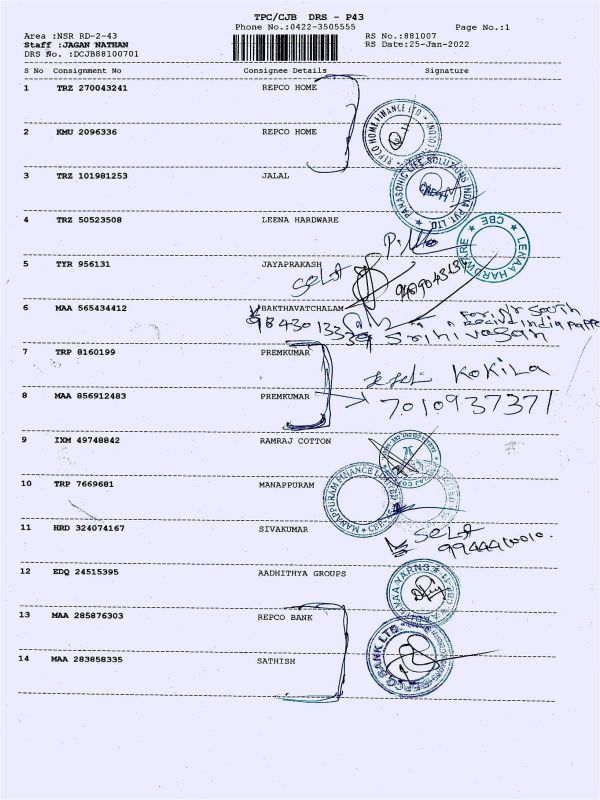 TPC/CJB DRS - P43
Phone No.:0422-3505555 Page No.:1
Area :NSR RD-2-43 RS No.:881007
Staff :JAGAN NATHAN RS Date:25-Jan-2022
DRS No. :DCJB88100701
S No Consignment No Consignee Details Signature
1 TRZ 270043241 REPCO HOME
REPCO HOME FINANCE LTD
2 KMU 2096336 REPCO HOME
3 TRZ 101981253 JALAL
PANASONIC LIFE SOLUTIONS INDIA PVT. LTD.
4 TRZ 50523508 LEENA HARDWARE
LENAA HARDWARE CBE
5 TYR 956131 JAYAPRAKASH
Self
6 MAA 565434412 BAKTHAVATCHALAM
Srinivasan
7 TRP 8160199 PREMKUMAR
KOKILA
8 MAA 856912483 PREMKUMAR
7010937371
9 IXM 49748842 RAMRAJ COTTON
10 TRP 7669681 MANAPPURAM
MANAPPURAM FINANCE LIMITED
11 HRD 324074167 SIVAKUMAR
Self
12 EDQ 24515395 AADHITHYA GROUPS
13 MAA 285876303 REPCO BANK
REPCO BANK LTD.
14 MAA 283858335 SATHISH